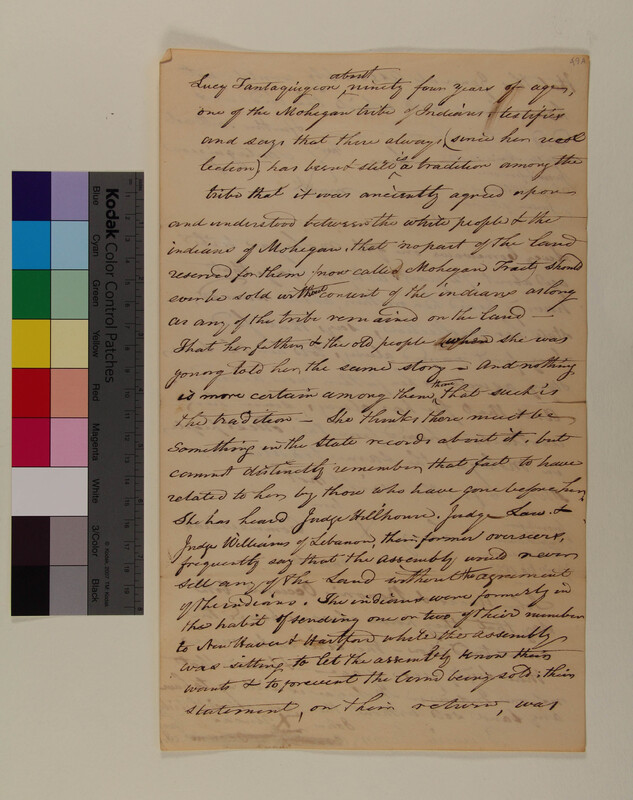 about
Lucy Tantaquigeon ninety four years of age,
one of the Mohegan tribe of Indians, testifies
and says that there always (since her recol
lection) has been & still is a tradition among the
tribe that it was anciently agreed upon
and understood between the white people & the
indians of Mohegan, that no part of the land
reserved for them (now called Mohegan Tract) should
ever be sold without consent of the indians as long
as any of the tribe remained on the land —
That her father & the old people when she was
young told her the same story — And nothing
is more certain among them, than that such is
the tradition — She thinks there must be
something in the State records about it, but
cannot distinctly remember that fact to have
related to her by those who have gone before her,
She has heard Judge Hillhouse, Judge Law &
Judge Williams of Lebanon, their former overseers,
frequently say that the assembly would never
sell any of the Land without the agreement
of the indians. The indians were formerly in
the habit of sending one or two of their number
to New Haven & Hartford while the assembly
was sitting to let the assembly know their
wants & to prevent the land being sold: their
statement, on their return, was
Kodak
Color Control Patches
Blue
Cyan
Green
Yellow
Red
Magenta
White
3/Color
Black